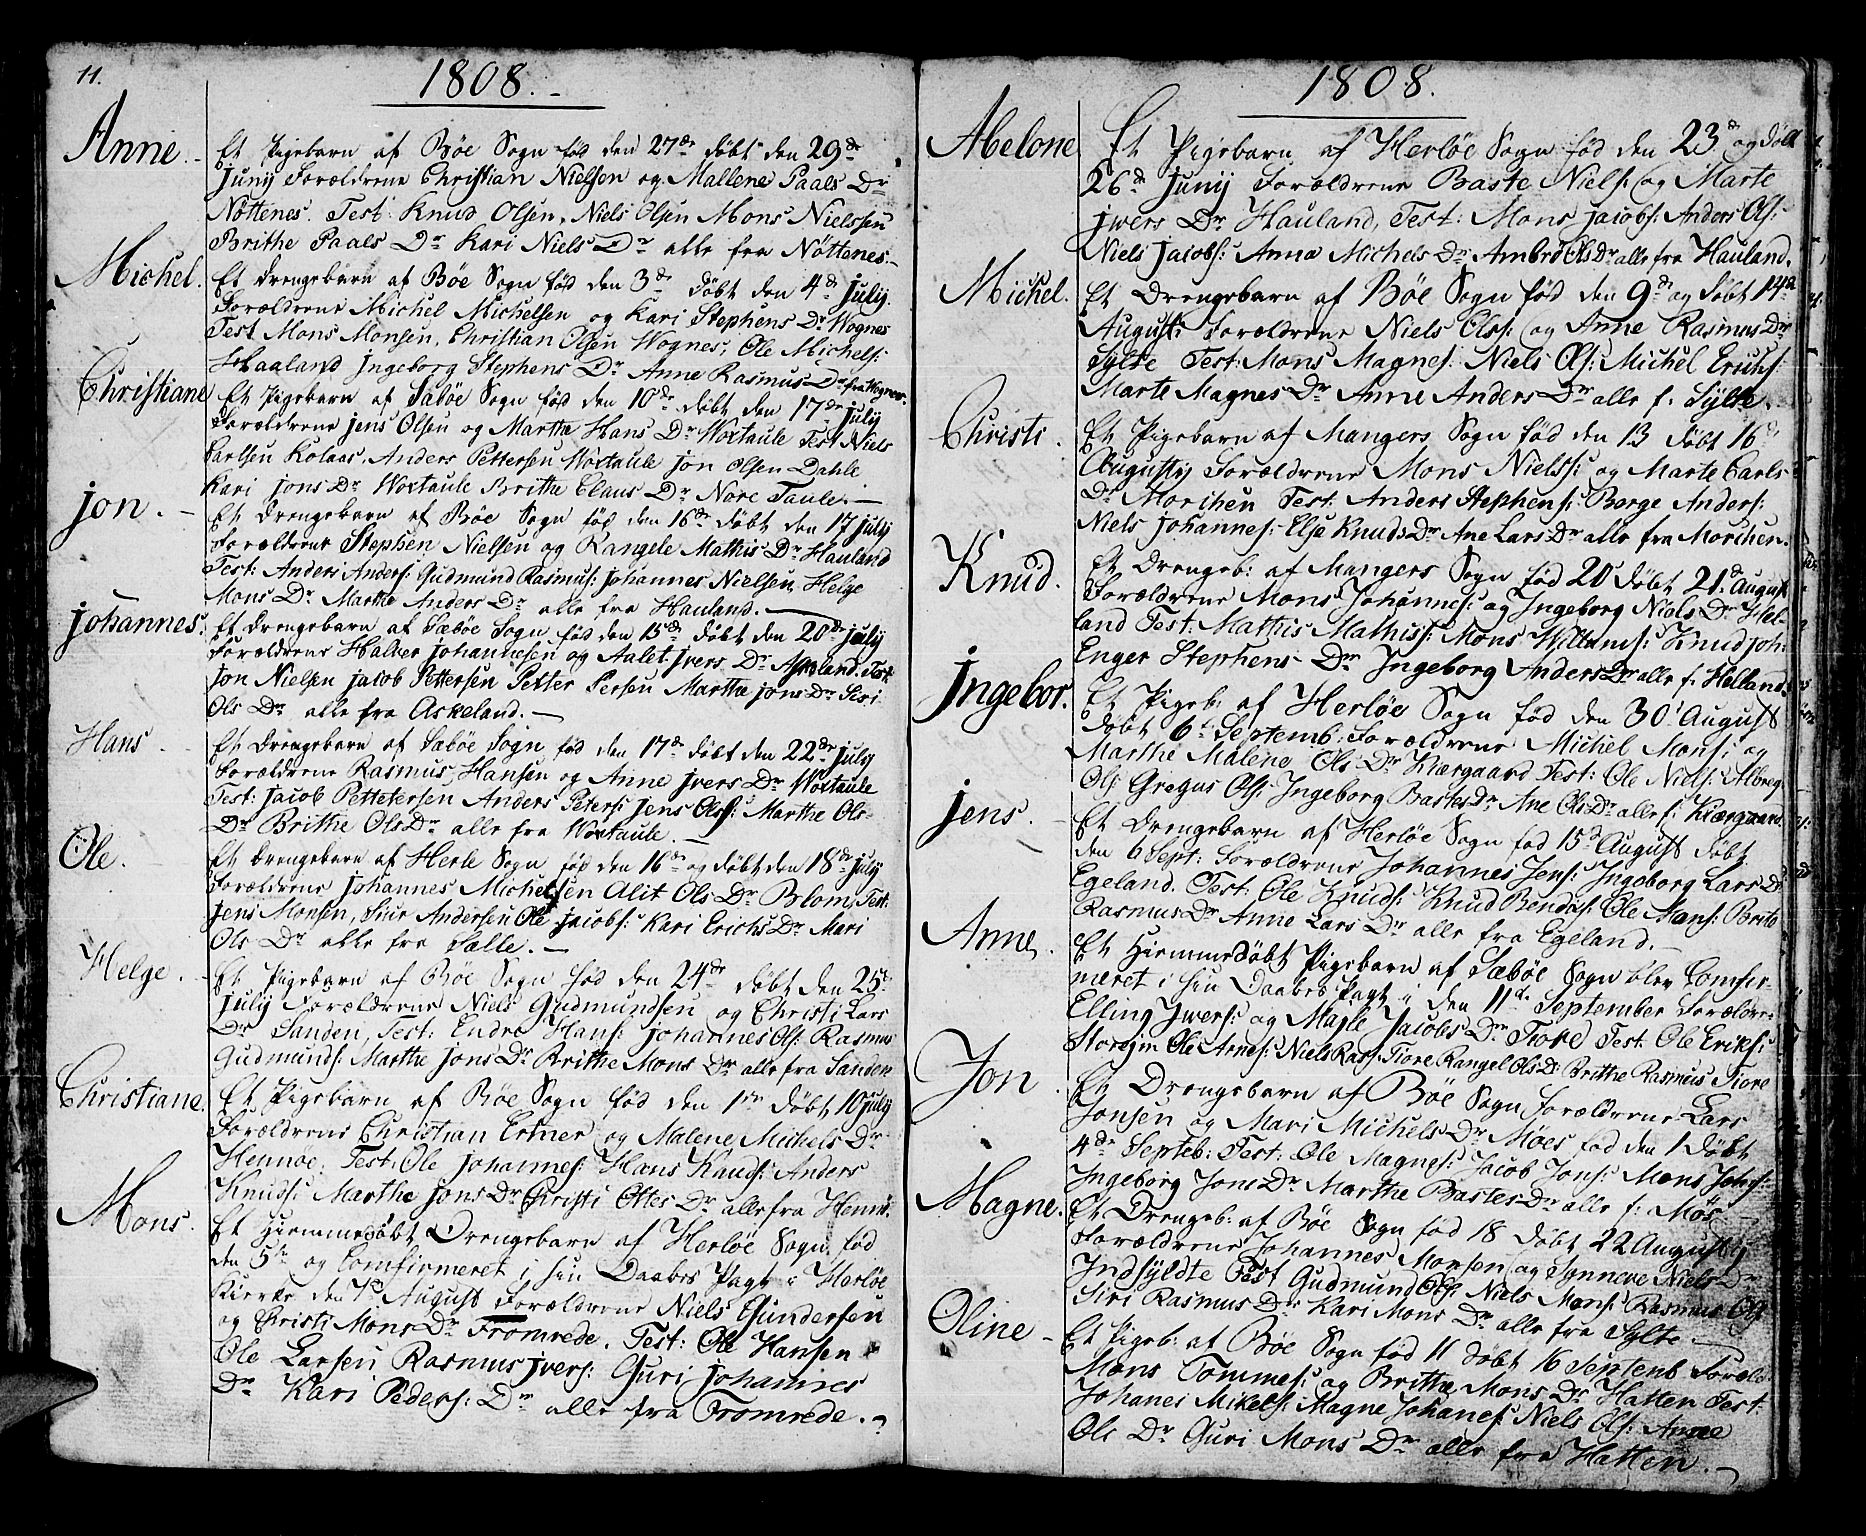 11.
1808.
Anne.
Et Pigebarn af Bøe Sogn fød den 27de døbt den 29de
Junij Forældrene Christian Nielsen og Mallene Paals Dr
Nøttenes. Test: Knud Olsen, Niels Olsen Mons Nielssen
Brithe Paals Dr Kari Niels Dr alle fra Nøttenes.
Michel.
Et Drengebarn af Bøe Sogn fød den 3de døbt den 4de July.
Forældrene Michel Michelsen og Kari Stephens Dr Wognes
Test Mons Monsen, Christian Olsen Wognes, Ole Michels:
Haaland Ingeborg Stephens Dr Anne Rasmus Dr fra Wognes.
Christiane
Et Pigebarn af Sæbøe Sogn fød den 10de døbt den 17de July
Forældrene Jens Olsen og Martha Hans Dr Woxtaule Test Niels
Carlsen Kolaas, Anders Pettersen Woxtaule Jon Olsen Dahle
Kari Jons Dr Woxtaule Brithe Claus Dr Nore Taule.
Jon.
Et Drengebarn af Bøe Sogn fød den 16de døbt den 17 July
Forældrene Stephen Nielsen og Rangele Mathis Dr Hauland
Test: Anders Anders: Gudmund Rasmus: Johannes Nielsen, Helge
Mons Dr Marthe Anders Dr alle fra Hauland.
Johannes.
Et Drengebarn af Sæbøe Sogn fød den 15de døbt den 20de July
Forældrene Halver Johannesen og Aalet Jvers Dr Askeland. Test
Jon Nielsen Jacob Pettersen Petter Persen Marthe Jons Dr Siri
Ols Dr alle fra Askeland.
Hans
Et Drengebarn af Sæbøe Sogn fød den 17de døbt den 22de July
Forældrene Rasmus Hansen og Anne Jvers Dr Woxtaule
Test: Jacob Pettetersen Anders Peters: Jens Ols: Marthe Ols
Dr Brithe Ols Dr alle fra Woxtaule.
Ole.
Et Drengebarn af Herle Sogn fød den 16de og døbt den 18de July
Forældrene Johannes Michelsen Alit Ols Dr Blom, Test:
Jens Monsen, Siur Andersen Ole Jacobs: Kari Erichs Dr Mari
Ols Dr alle fra Sælle.
Helge.
Et Pigebarn af Bøe Sogn fød den 24de døbt den 25t
July Forældrene Niels Gudmundsen og Christi Lars
Dr Sanden, Test: Endre Hans: Johannes Ols: Rasmus
Gudmunds: Marthe Jons Dr Brithe Mons Dr alle fra Sanden
Christiane.
Et Pigebarn af Bøe Sogn fød den 1ste døbt 10 July
Forældrene Christian Ertner og Malene Michels Dr
Hennøe. Test: Ole Johannes: Hans Knuds: Anders
Knuds: Marthe Jons Dr Christi Olles Dr alle fra Hennø.
Mons.
Et Hiemmedøbt Drengebarn af Herløe Sogn, fød
den 5te og Comfirmeret i sin Daabes Pagt i Herløe
Kierke den 7de August Forældrene Niels Gundersen
og Christi Mons Dr Fromrede. Test: Ole Hansen
Ole Larsen Rasmus Jvers: Guri Johannes
Dr Kari Peders: Dr alle fra Fromrede.
1808.
Abelone
Et Pigebarn af Herløe Sogn fød den 23de og døbt
26de Junij Forældrene Baste Niels: og Marte
Jwers Dr Hauland, Test: Mons Jacobs: Anders Ols:
Niels Jacobs: Anna Michels Dr Ambrø Ols Dr alle fra Hauland.
Michel.
Et Drengebarn af Bøe Sogn fød den 9de og døbt 14de
August: Forældrene Niels Ols: og Anne Rasmus Dr
Sylte Test: Mons Magnes: Niels Ols: Michel Erichs:
Marte Magnes Dr Anne Anders Dr alle f. Sylte.
Christi.
Et Pigebarn af Mangers Sogn fød den 13 døbt 16de
Augustij Forældrene Mons Niels: og Marte Carls
Dr Morchen Test: Anders Stephens: Børge Anders:
Niels Johannes: Elsje Knuds Dr Ane Lars Dr alle fra Morchen.
Knud.
Et Drengeb: af Mangers Sogn fød 20 døbt 21de August
Forældrene Mons Johannes: og Ingeborg Niels Dr Hel-
land Test: Mathis Mathis: Mons Willums: Knud Joh:
Enger Stephens Dr Ingeborg Anders Dr alle f. Helland.
Jngebor.
Et Pigeb: af Herløe Sogn fød den 30 August
døbt 6te Septemb: Forældrene Michel Mons: og
Marthe Malene Ols Dr Kiærgaard Test: Ole Niels:
Ols Gregus Ols: Ingeborg Bastes Dr Ane Ols Dr alle f: Kiærgaard.
Jens.
Et Drengebarn af Herløe Sogn fød 15de August døbt
den 6 Sept: Forældrene Johannes Jens: Ingeborg Lars Dr
Egeland. Test: Ole Knuds: Knud Bendis: Ole Hans: Brite
Rasmus Dr Anne Lars Dr alle fra Egeland.
Anne.
Et Hiemmedøbt Pigebarn af Sæbøe Sogn blev Comfir-
meret i sin Daabes Pagt i den 11te September Forældre:
Elling Jwers: og Magle Jacobs Dr Fiore Test: Ole Eriks:
Ole Arnes: Niels Ras: Fiore Rangel Ols Dr Brithe Rasmus Fiore
Jon.
Et Drengebarn af Bøe Sogn Forældrene Lars
Jonsen og Mari Michels Dr Møes fød den 1 døbt
4de Septeb: Test: Ole Magnes: Jacob Jons: Mons Johs:
Ingeborg Jons Dr Marthe Bastes Dr alle f: Møs
Magne.
Et Drengeb: af Bøe Sogn fød 18 døbt 22 Augusty
Forældrene Johannes Monsen og Synneve Niels Dr
Indsyldte Test Gudmund Ols: Niels Mons: Rasmus Ols
Siri Rasmus Dr Kari Mons Dr alle fra Sylte
Oline
Et Pigeb: af Bøe Sogn fød 11 døbt 16 Septemb Foræld
Mons Tommes: og Brithe Mons Dr Hatten Test:
Johanes Mikels: Magne Johanes: Niels Ols: Anne
Ols Dr Guri Mons Dr alle fra Hatten.